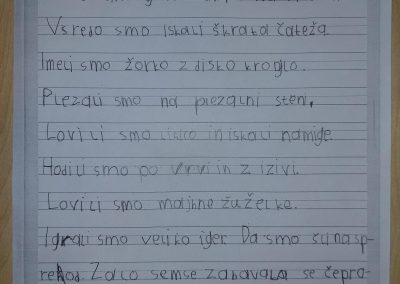 V sredo smo iskali škrata čateža.
Imeli smo žorko z disko kroglo.
Plezali smo na plezalni steni.
Lovili smo in iskali namige.
Hodili smo po vrvi in z izivi.
Lovili smo majhne žuželke.
Igrali smo veliko iger. Da smo šli na sp-
rehod. Zalo sem se zabavala se čepra-